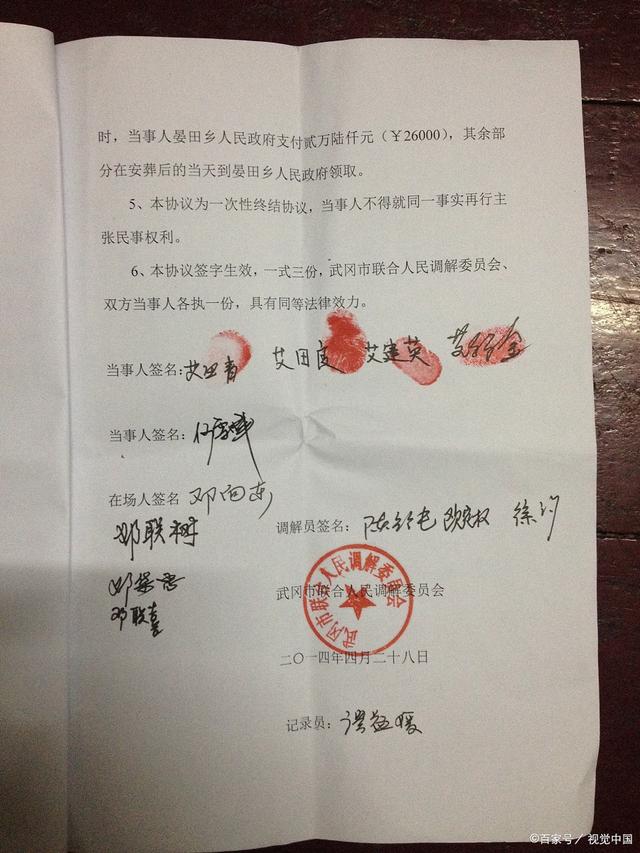 时，当事人晏田乡人民政府支付贰万陆仟元（￥26000），其余部
分在安葬后的当天到晏田乡人民政府领取。
5、本协议为一次性终结协议，当事人不得就同一事实再行主
张民事权利。
6、本协议签字生效，一式三份，武冈市联合人民调解委员会、
双方当事人各执一份，具有同等法律效力。
当事人签名：艾田青 艾田良 艾建英
当事人签名：
在场人签名 邓向东
调解员签名：
邓联树
武冈市联合人民调解委员会
武冈市联合人民调解委员会
邓联喜
二〇一四年四月二十八日
记录员：
©百家号／视觉中国